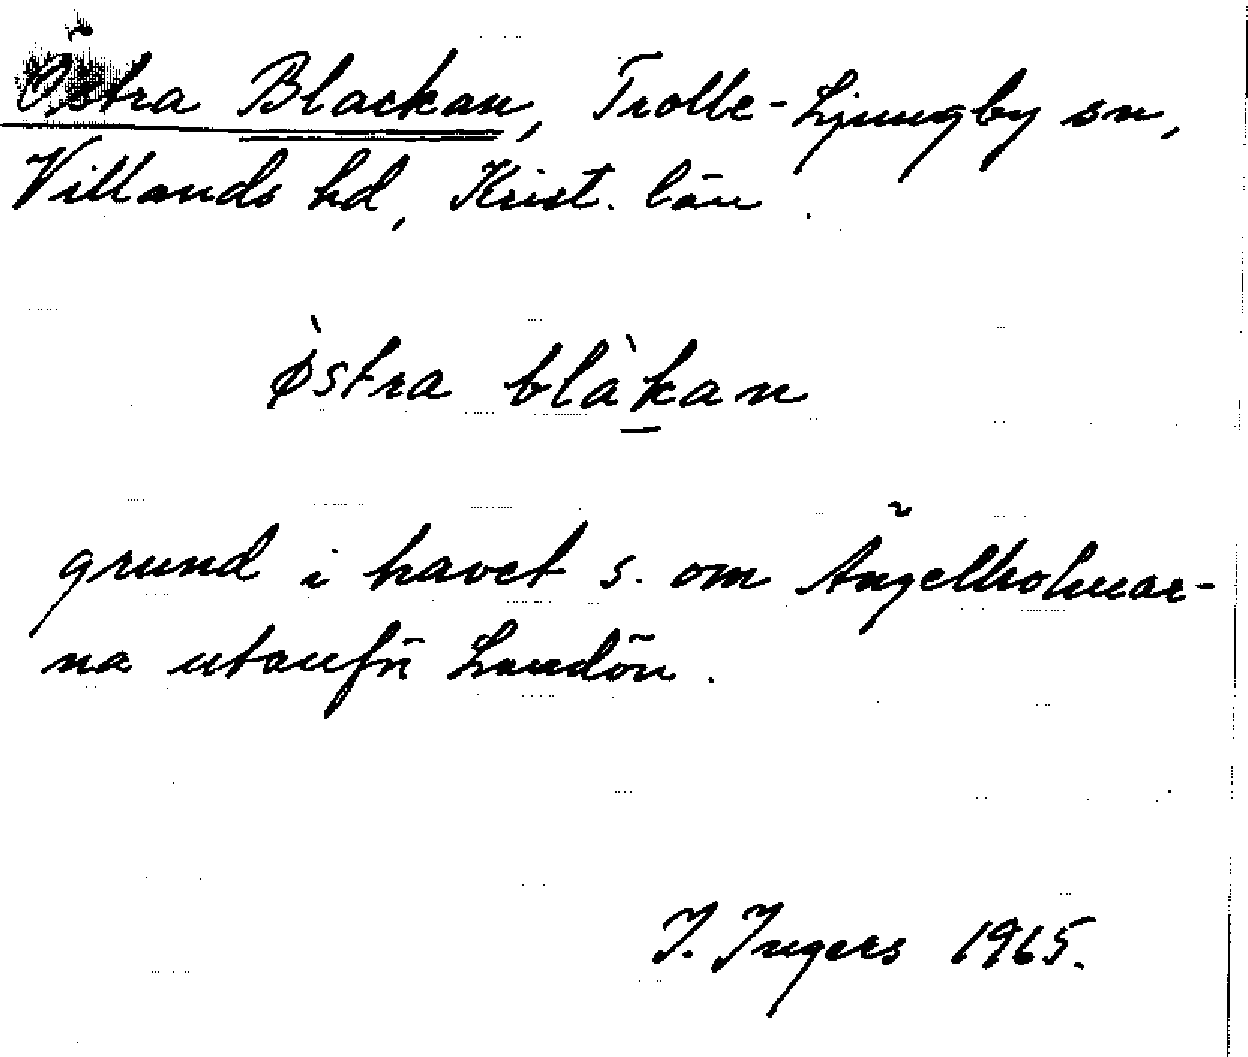 Östra Blackan, Trolle-Ljungby sn,
Villands hd, Krist. län.
ø̀stra blàkan
grund i havet s. om Ängelholmar-
na utanför Landön.
I. Ingers 1965.